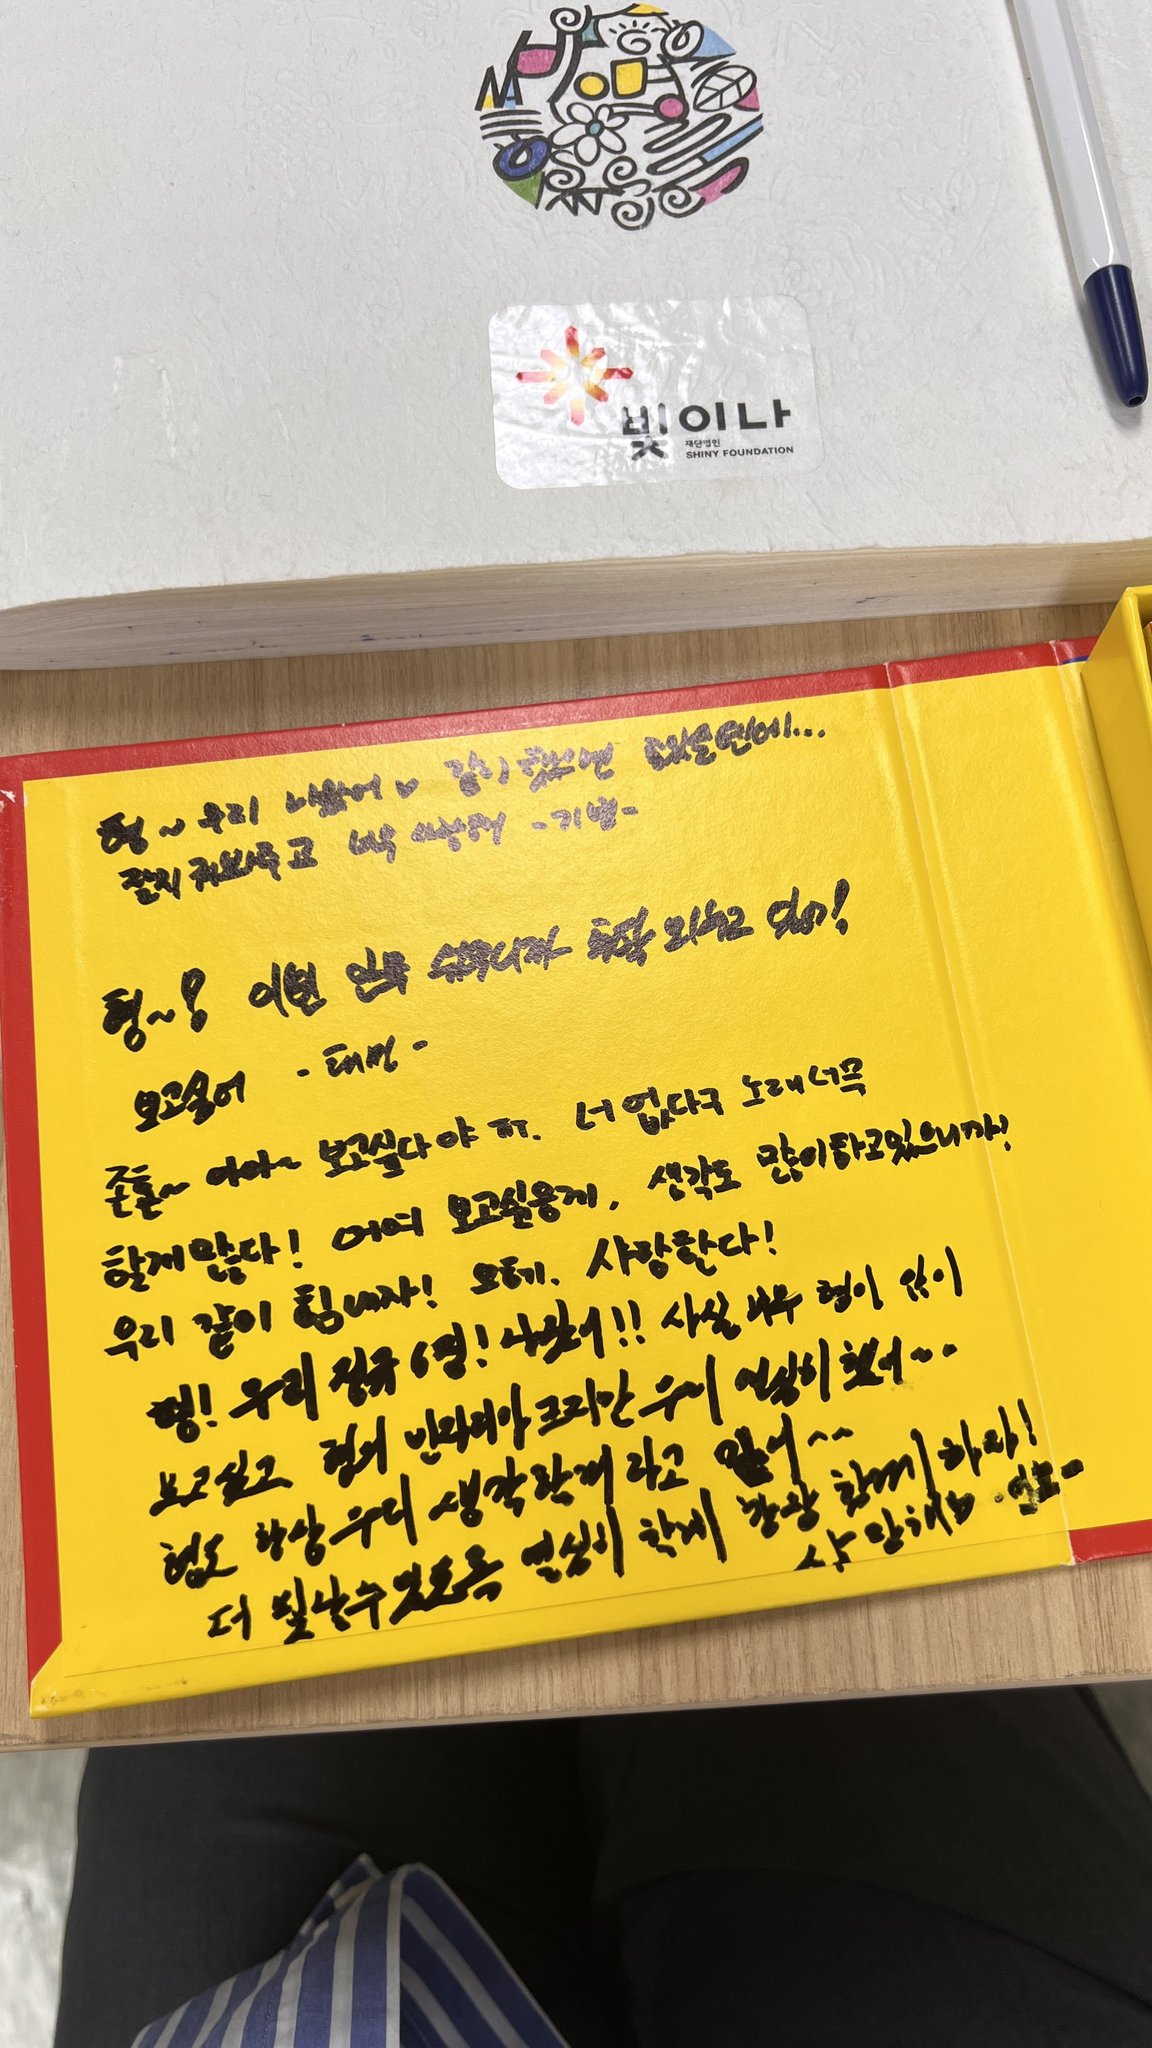 빛이나
재단법인
SHINY FOUNDATION
형~ 우리 나왔어 ♡ 같이 했으면
잘 지켜봐주고 너무 사랑해 -기범-
형~! 이번 안무 하고 있어!
보고싶어 -태민-
존톨~ 아아~ 보고싶다야 너 없다구 노래 너무
할게많다! 어여 보고싶응께, 생각도 많이하고있으니까!
우리 같이 힘내자! 오케. 사랑한다!
형! 우리 정규 6집! 나왔어!! 사실 너무 형이 많이
보고싶고 형의 빈자리야 크지만 우리 열심히 했어~~
형도 항상 우리 생각할거라고 믿어^^
더 빛날수있도록 열심히 할게 항상 함께하자!
사랑해요 -민호-